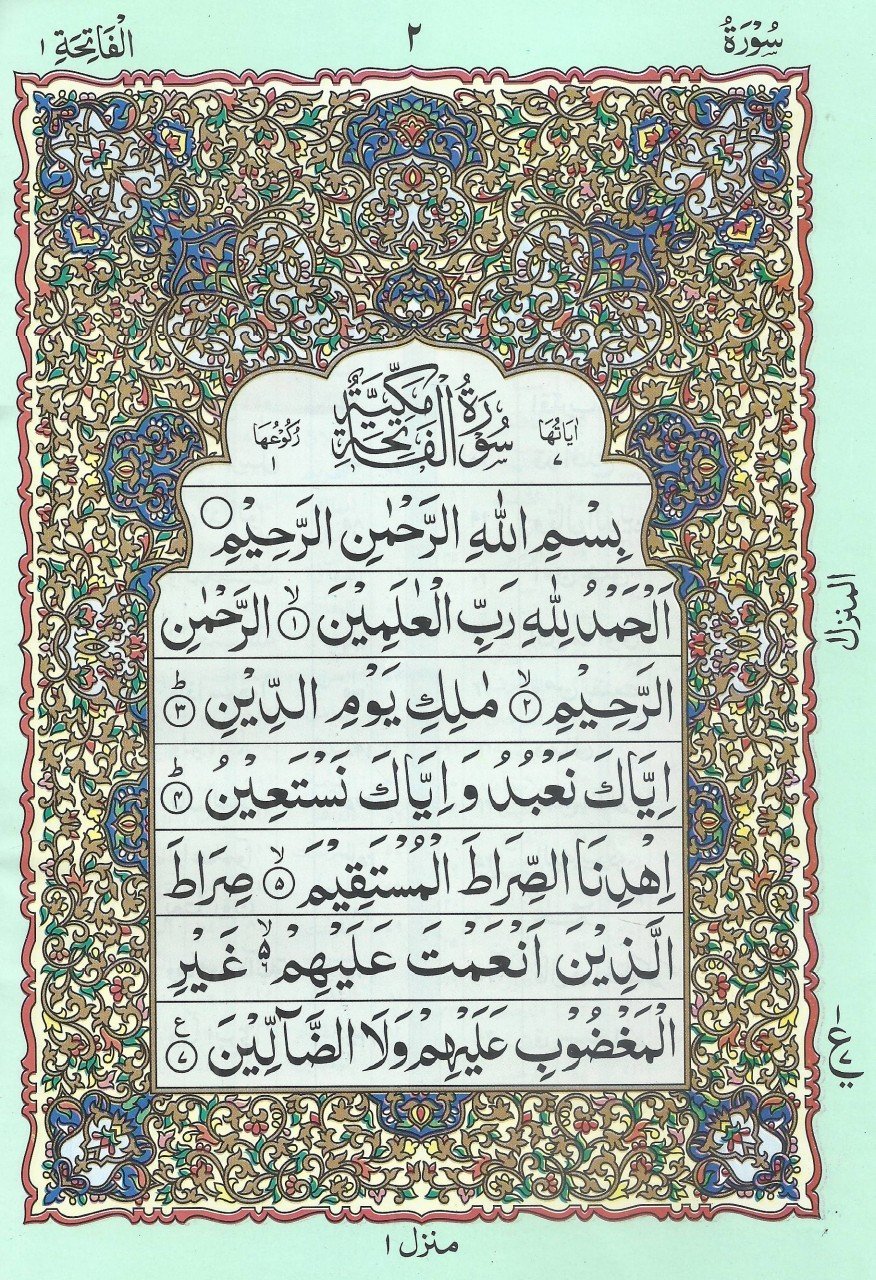 سُوْرَةُ ٢ الْفَاتِحَةِ ١
سُوْرَةُ الْفَاتِحَةِ مَكِّيَّةٌ
اٰيَاتُهَا ٧
رُكُوْعُهَا ١
بِسْمِ اللّٰهِ الرَّحْمٰنِ الرَّحِيْمِ ○
اَلْحَمْدُ لِلّٰهِ رَبِّ الْعٰلَمِيْنَ ۙ﴿١﴾ الرَّحْمٰنِ
الرَّحِيْمِ ۙ﴿٢﴾ مٰلِكِ يَوْمِ الدِّيْنِ ؕ﴿٣﴾
اِيَّاكَ نَعْبُدُ وَ اِيَّاكَ نَسْتَعِيْنُ ؕ﴿٤﴾
اِهْدِنَا الصِّرَاطَ الْمُسْتَقِيْمَ ۙ﴿٥﴾ صِرَاطَ
الَّذِيْنَ اَنْعَمْتَ عَلَيْهِمْ ۙ۵ ٦ غَيْرِ
الْمَغْضُوْبِ عَلَيْهِمْ وَلَا الضَّآلِّيْنَ ﴿٧﴾ ع
المنزل
١ ع ٧
منزل ١